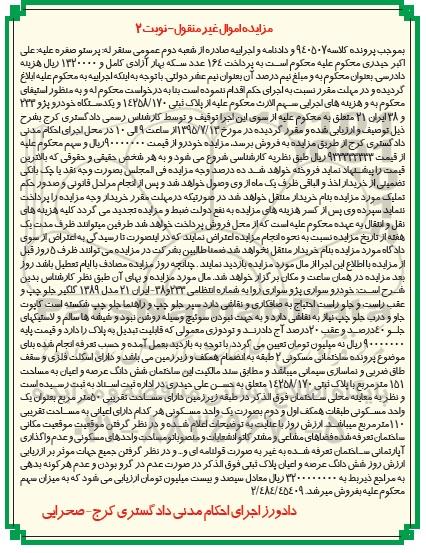 مزایده اموال غیر منقول - نوبت ۲
بموجب پرونده کلاسه ۹۴۰۵۰۷ و دادنامه و اجراییه صادره از شعبه دوم عمومی سنقر له: پرستو صفره علیه: علی
اکبر حیدری محکوم علیه محکوم است به پرداخت ۱۶۴ عدد سکه بهار آزادی کامل و ۱۳۲۰۰۰۰ ریال هزینه
دادرسی بعنوان محکوم به و مبلغ نیم درصد آن بعنوان نیم عشر دولتی. با توجه به اینکه اجراییه به محکوم علیه ابلاغ
گردیده و در مهلت مقرر نسبت به اجرای حکم اقدام ننموده است بنا به درخواست محکوم له و به منظور استیفای
محکوم به و هزینه های اجرایی سهم الارث محکوم علیه از پلاک ثبتی ۱۴۲۵۸/۱۷۰ و یکدستگاه خودرو پژو ۲۳۳
و ۳۸ ایران ۲۱ متعلق به محکوم علیه از سوی این اجرا توقیف و توسط کارشناس رسمی دادگستری کرج بشرح
ذیل توصیف و ارزیابی شده و مقرر گردیده در مورخ ۱۳۹۵/۷/۱۳ از ساعت ۹ الی ۱۰ در محل اجرای احکام مدنی
دادگستری کرج از طریق مزایده به فروش برسد. مزایده خودرو از قیمت ۹۰۰۰۰۰۰۰ ریال و سهم محکوم علیه
از قیمت ۹۳۳۳۳۳۳۳ ریال طبق نظریه کارشناسی شروع می شود و به هر شخص حقیقی و حقوقی که بالاترین
قیمت را پیشنهاد نماید فروخته خواهد شد ده درصد وجه مزایده فی المجلس بصورت وجه نقد یا چک بانکی
تضمینی از خریدار اخذ و الباقی ظرف یک ماه از وی وصول خواهد شد و پس از انجام مراحل قانونی و صدور حکم
تملیک مورد مزایده بنام خریدار منتقل خواهد شد در صورتیکه در مهلت مقرر خریدار وجه مزایده را پرداخت
ننماید سپرده وی پس از کسر هزینه های مزایده به نفع دولت ضبط و مزایده تجدید می گردد کلیه هزینه های
نقل و انتقال به عهده محکوم علیه است که از محل فروش پرداخت خواهد شد طرفین میتوانند ظرف مدت یک
هفته از تاریخ مزایده نسبت به نحوه انجام مزایده اعتراض نمایند که در اینصورت تا رسیدگی به اعتراض از سوی
دادگاه مورد مزایده بنام خریدار منتقل نخواهد شد ضمنا طالبین بشرکت در مزایده می توانند ظرف ۵ روز قبل
از مزایده با اطلاع این اجرا از مال مورد مزایده بازدید نمایند. چنانچه روز مزایده مصادف با ایام تعطیل باشد روز
بعد مزایده در همان ساعت و مکان برگزار خواهد شد. مال مورد مزایده و بهای آن طبق نظر کارشناس بدین
شرح است: خودرو سواری پژو سواری رو به شماره انتظامی ۲۳۳و۳۸-ایران ۲۱ مدل ۱۳۸۹ گلگیر جلو چپ و
عقب راست و جلو راست احتیاج به صافکاری و نقاشی دارد سپر جلو چپ و راهنما جلو چپ شکسته است کاپوت
جلو و درب جلو چپ نیاز به نقاشی دارد و به جهت نبودن سوئیچ وسیله روشن نبود و شیشه ها سالم و لاستیکهای
جلو ۴۰درصد و عقب ۲۰درصد آج دارند و تودوزی معمولی که قابلیت تبدیل به پلاک را دارد و قیمت پایه
۹۰۰۰۰۰۰۰ ریال نه میلیون تومان تعیین می گردد. با توجه به بازدید بعمل آمده و حسب تعرفه انجام شده بنای
موضوع پرونده ساختمانی مسکونی ۲ طبقه به انضمام همکف و زیرزمین می باشد و دارای اسکلت فلزی و سقف
طاق ضربی و نماسازی سیمانی میباشد و مطابق سند مالکیت این ساختمان شش دانگ عرصه و اعیان به مساحت
۱۵۱ متر مربع با پلاک ثبتی ۱۴۲۵۸/۱۷۰ متعلق به حسن علی حیدری در اداره ثبت اسناد به ثبت رسیده است
و نظر به معاینه محلی ساختمان فوق الذکر در طبقه زیرزمین دارای مساحت تقریبی ۵۰متر مربع بعنوان یک
واحد مسکونی طبقات همکف اول و دوم بصورت یک واحد مسکونی هر کدام دارای اعیانی به مساحت تقریبی
۱۱۰مترمربع میباشد. ارزش روز با عنایت به توضیحات اعلام شده و در نظر گرفتن موقعیت موقعیت مکانی
ساختمان تعرفه شده فضاهای مشاعی و مشترکات و انشعابات و منصوبات و مساحت واحدهای مسکونی و عدم واگذاری
آپارتمانی ساختمان تعرفه شده به غیر به صورت قولنامه ای و.. و در نظر گرفتن جمیع جهات موثر بر ارزیابی
ارزش روز شش دانگ عرصه و اعیان پلاک ثبتی فوق الذکر در صورت عدم در گرو بودن و عدم هر گونه بدهی
به مراجع ذیربط به ۳۲۰۰۰۰۰۰۰۰ ریال معادل سیصد و بیست میلیون تومان ارزیابی می شود که به میزان سهم
محکوم علیه بفروش میرسد. ۲/۴۸۴/۴۵۴۰۹
دادورز اجرای احکام مدنی دادگستری کرج - صحرایی